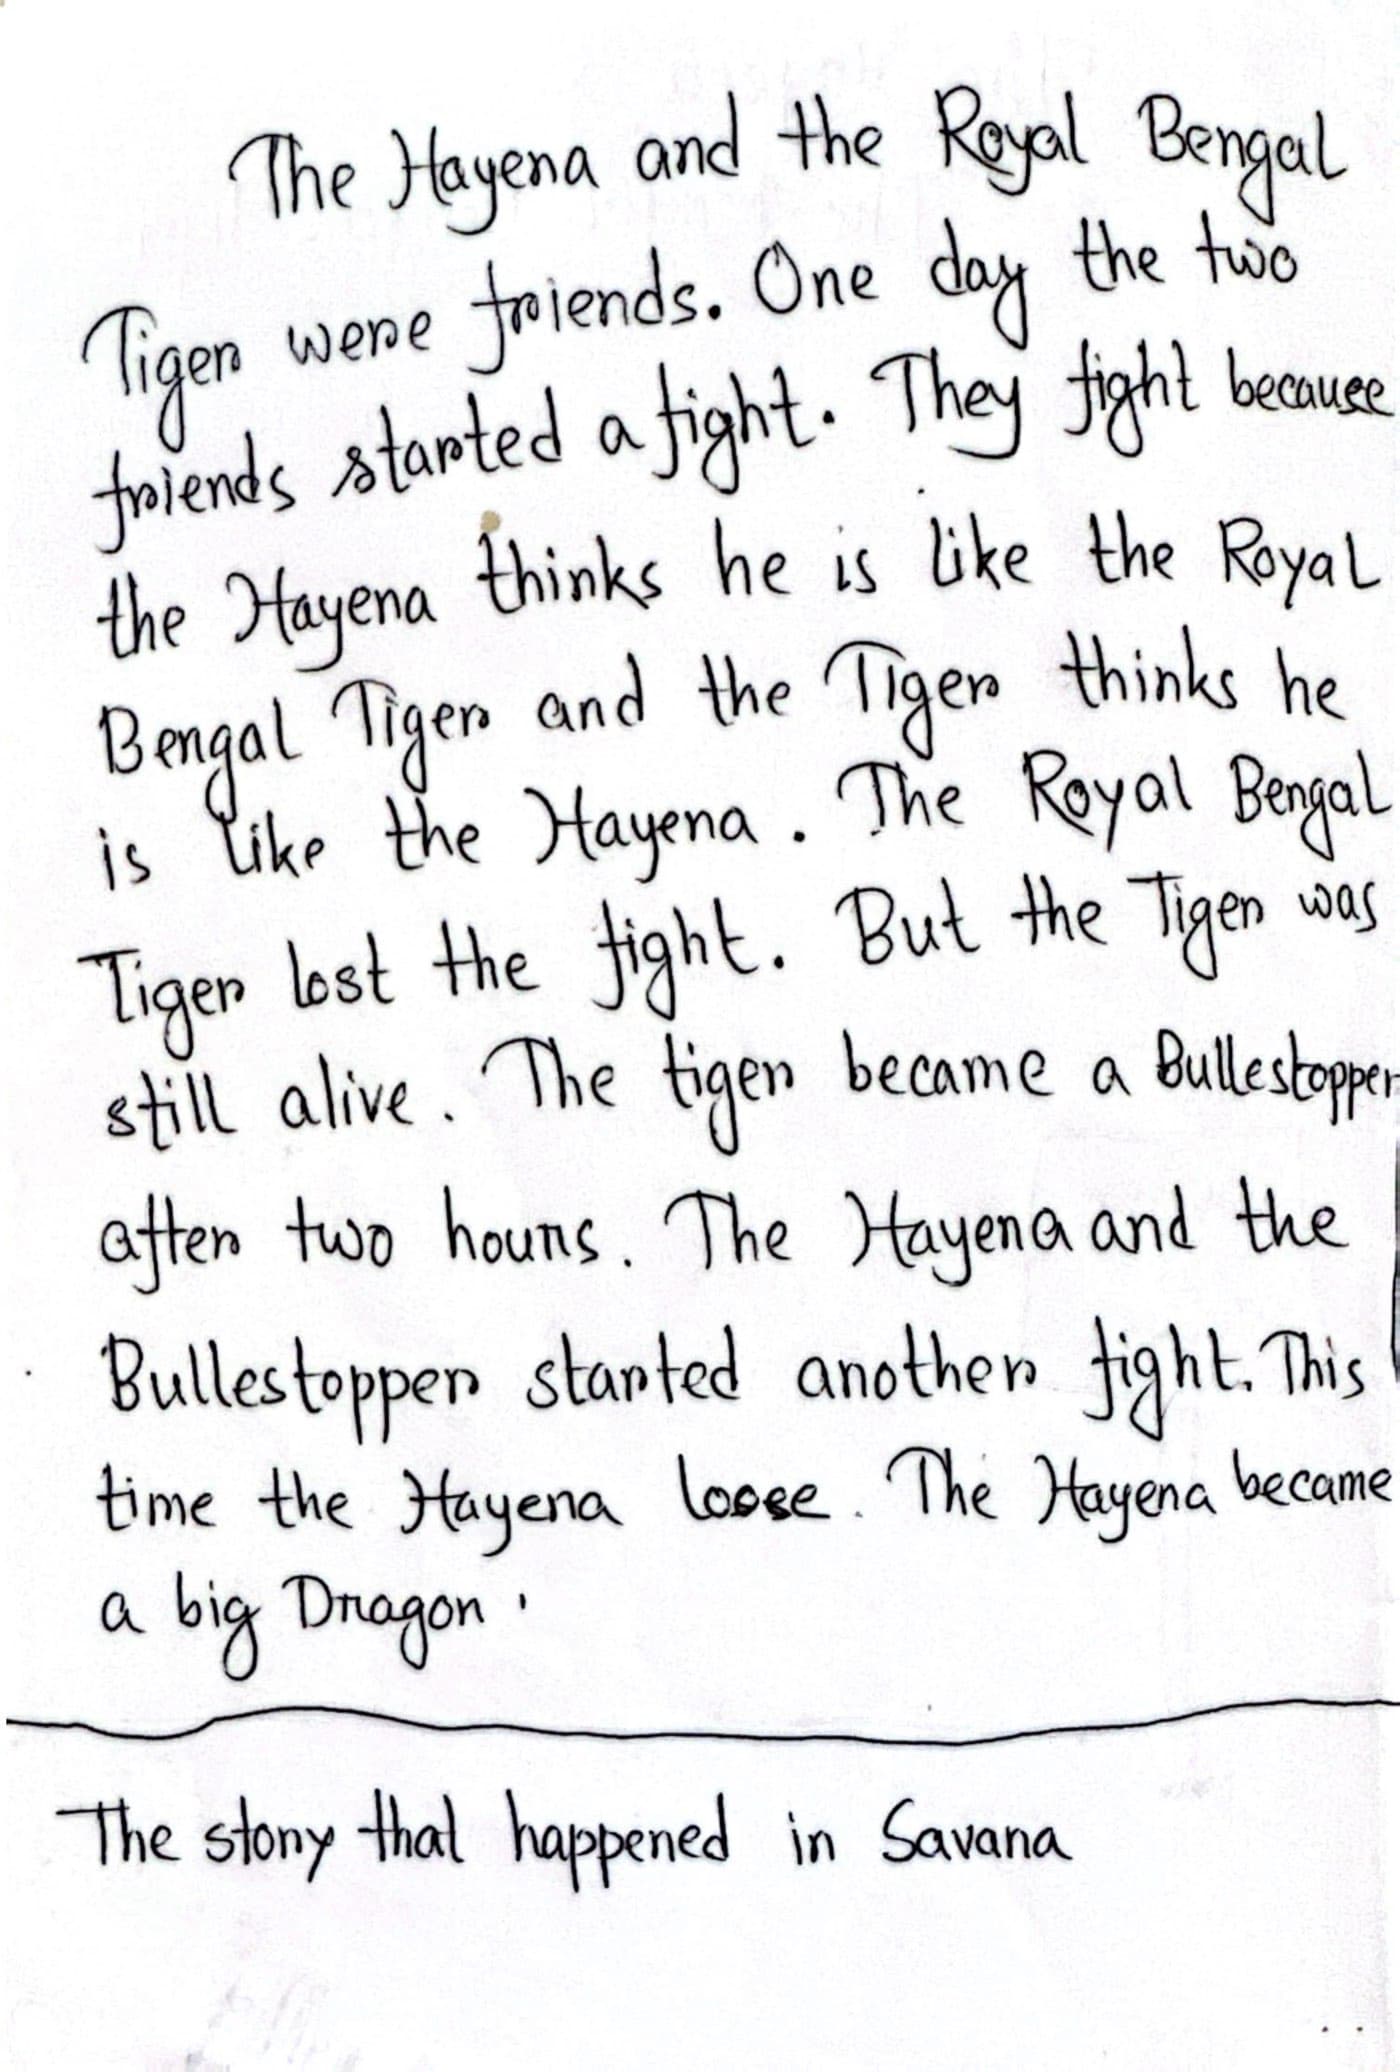 The Hayena and the Royal Bengal
Tiger were friends. One day the two
friends started a fight. They fight because
the Hayena thinks he is like the Royal
Bengal Tiger and the Tiger thinks he
is like the Hayena. The Royal Bengal
Tiger lost the fight. But the Tiger was
still alive. The tiger became a Bullestopper
after two hours. The Hayena and the
Bullestopper started another fight. This
time the Hayena loose. The Hayena became
a big Dragon.
The story that happened in Savana